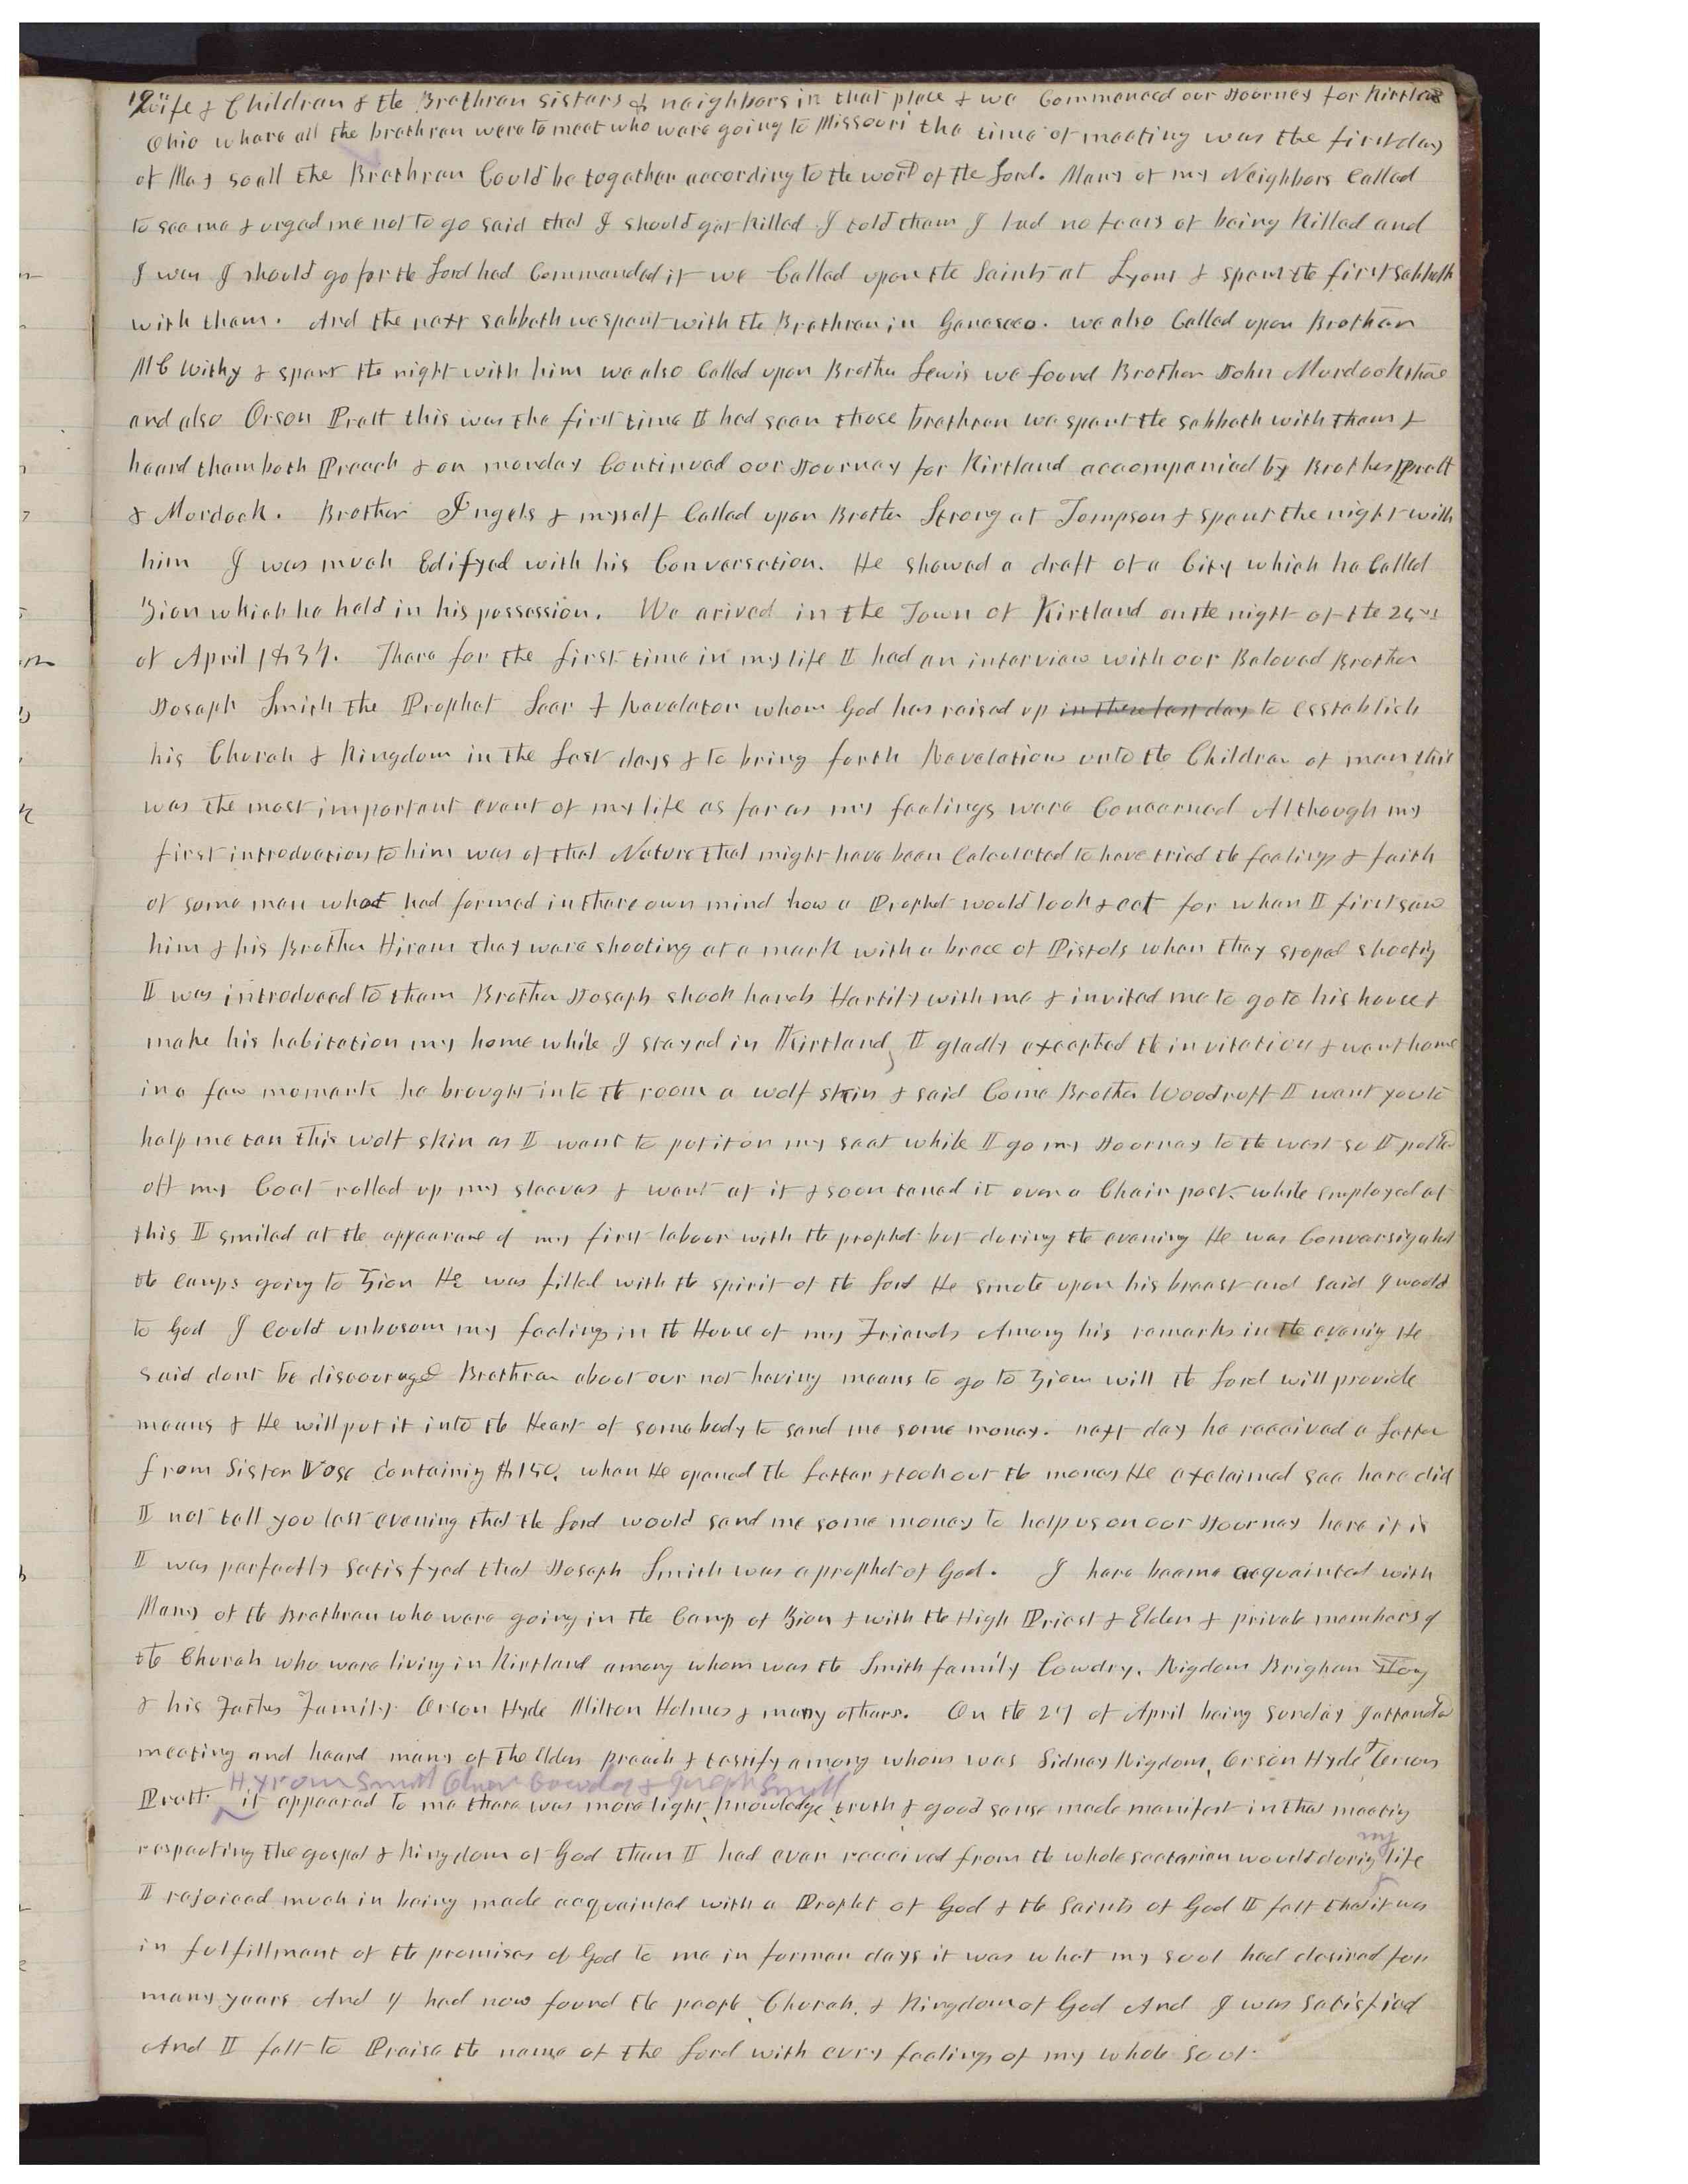 12
wife & Children & the Brethren sisters & neighbors in that place & we Commenced our Journey for Kirtland
Ohio where all the brethren were to meet who were going to Missouri the time of meeting was the first day
of May so all the Brethren Could be together according to the word of the Lord. Many of my Neighbors Called
to see me & urged me not to go said that I should get killed I told them I had no fears of being killed and
I was I should go for the Lord had Commanded it we Called upon the Saints at Lyons & spent the first sabbath
with them. And the next sabbath we spent with the Brethren in Geneseeo. we also Called upon Brother
McWithy & spent the night with him we also Called upon Brother Lewis we found Brother John Murdock there
and also Orson Pratt this was the first time I had seen those brethren we spent the sabbath with them &
heard them both Preach & on monday Continued our Journey for Kirtland accompanied by Brother Pratt
& Mordock. Brother Ingels & myself Called upon Brother Strong at Tompson & spent the night with
him I was much Edifyed with his Conversation. He showed a draft of a City which he Called
Zion which he held in his possession. We arived in the Town of Kirtland on the night of the
of April 1834. There for the first time in my life I had an interview with our Beloved Brother
Joseph Smith the Prophet Seer & Revelator whom God has raised up in these last days to esstablish
his Church & Kingdom in the Last days & to bring forth Revelations unto the Children of men this
was the most important event of my life as far as my feelings were Concerned Although my
first introduction to him was of that Nature that might have been Calculated to have tried the feelings & faith
of some men what had formed in there own mind how a Prophet would look & act for when I first saw
him & his Brother Hiram they were shooting at a mark with a brace of Pistols when they stoped shooting
I was introduced to them Brother Joseph shook hands Hartily with me & invited me to go to his house &
make his habitation my home while I stayed in Kirtland, I gladly excepted the invitation & went home
in a few moments he brought into the room a wolf skin & said Come Brother Woodruff I want you to
help me tan this wolf skin as I want to put it on my seat while I go my Journey to the west so I pulled
off my Coat rolled up my sleeves & went at it & soon taned it over a Chair post. while employed at
this I smiled at the appearance of my first labour with the prophet but during the evening He was Conversing about
the camps going to Zion He was filled with the spirit of the Lord He smote upon his breast and said I would
to God I could unbosom my feelings in the House of my Friends Among his remarks in the evening He
said dont be discouraged Brethren about our not having means to go to Zion will the Lord will provide
means & He will put it into the Heart of some body to send me some money. next day he received a Letter
from Sister Vose Containing $150. when He opened the Letter & took out the money He exclaimed see here did
I not tell you last evening that the Lord would send me some money to help us on our Journey here it is
I was perfectly satisfyed that Joseph Smith was a prophet of God. I here became acquainted with
Many of the Brethren who were going in the Camp of Zion & with the High Priest & Elders & private members of
the Church who were living in Kirtland among whom was the Smith family Cowdry, Rigdom Brigham
& his Fathers Family Orson Hyde Milton Holmes & many others. On the 27 of April being Sunday I attended
meeting and heard many of the Elders preach & testify among whom was Sidney Rigdom, Orson Hyde & Orson
Hyrom Smith Oliver Cowdry & Joseph Smith
Pratt. it appeared to me there was more light, knowledge, truth & good sense made manifest in that meeting
my
respecting the gospel & Kingdom of God than I had ever received from the whole sectarian would during life
I rejoiced much in being made acquainted with a Prophet of God & the Saints of God I felt that it was
in fulfillment of the promises of God to me in former days it was what my soul had desired for
many years And I had now found the people, Church, & Kingdom of God And I was satisfied
And I felt to Praise the name of the Lord with evry feelings of my whole Soul.